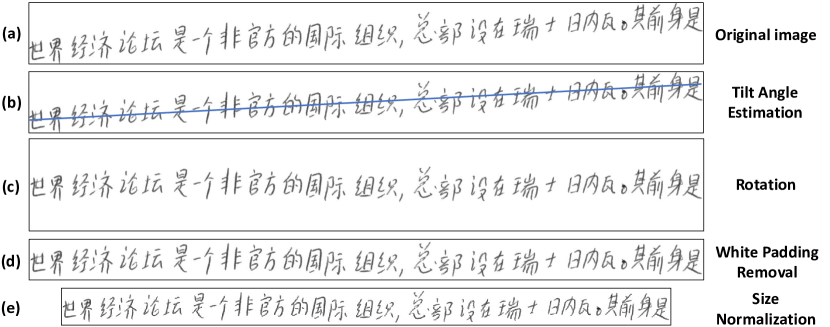 (a) 世界经济论坛是一个非官方的国际组织,总部设在瑞士日内瓦。其前身是 Original image
(b) 世界经济论坛是一个非官方的国际组织,总部设在瑞士日内瓦。其前身是 Tilt Angle
Estimation
(c) 世界经济论坛是一个非官方的国际组织,总部设在瑞士日内瓦。其前身是 Rotation
(d) 世界经济论坛是一个非官方的国际组织,总部设在瑞士日内瓦。其前身是 White Padding
Removal
(e) 世界经济论坛是一个非官方的国际组织,总部设在瑞士日内瓦。其前身是 Size
Normalization